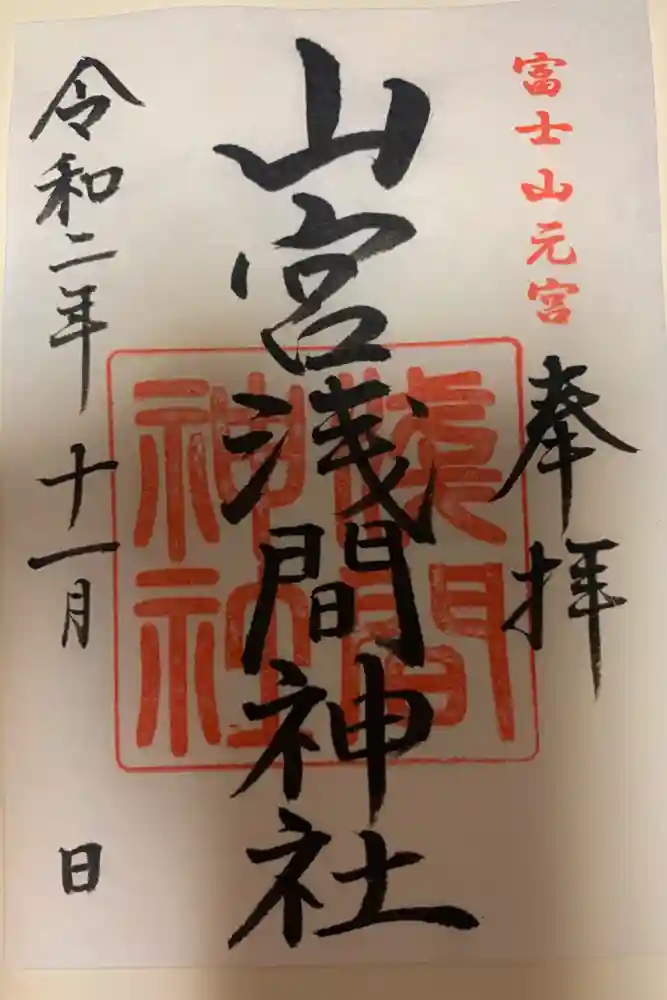 富士山元宮
奉拝
山宮浅間神社
淺間
神社
令和二年十一月 日